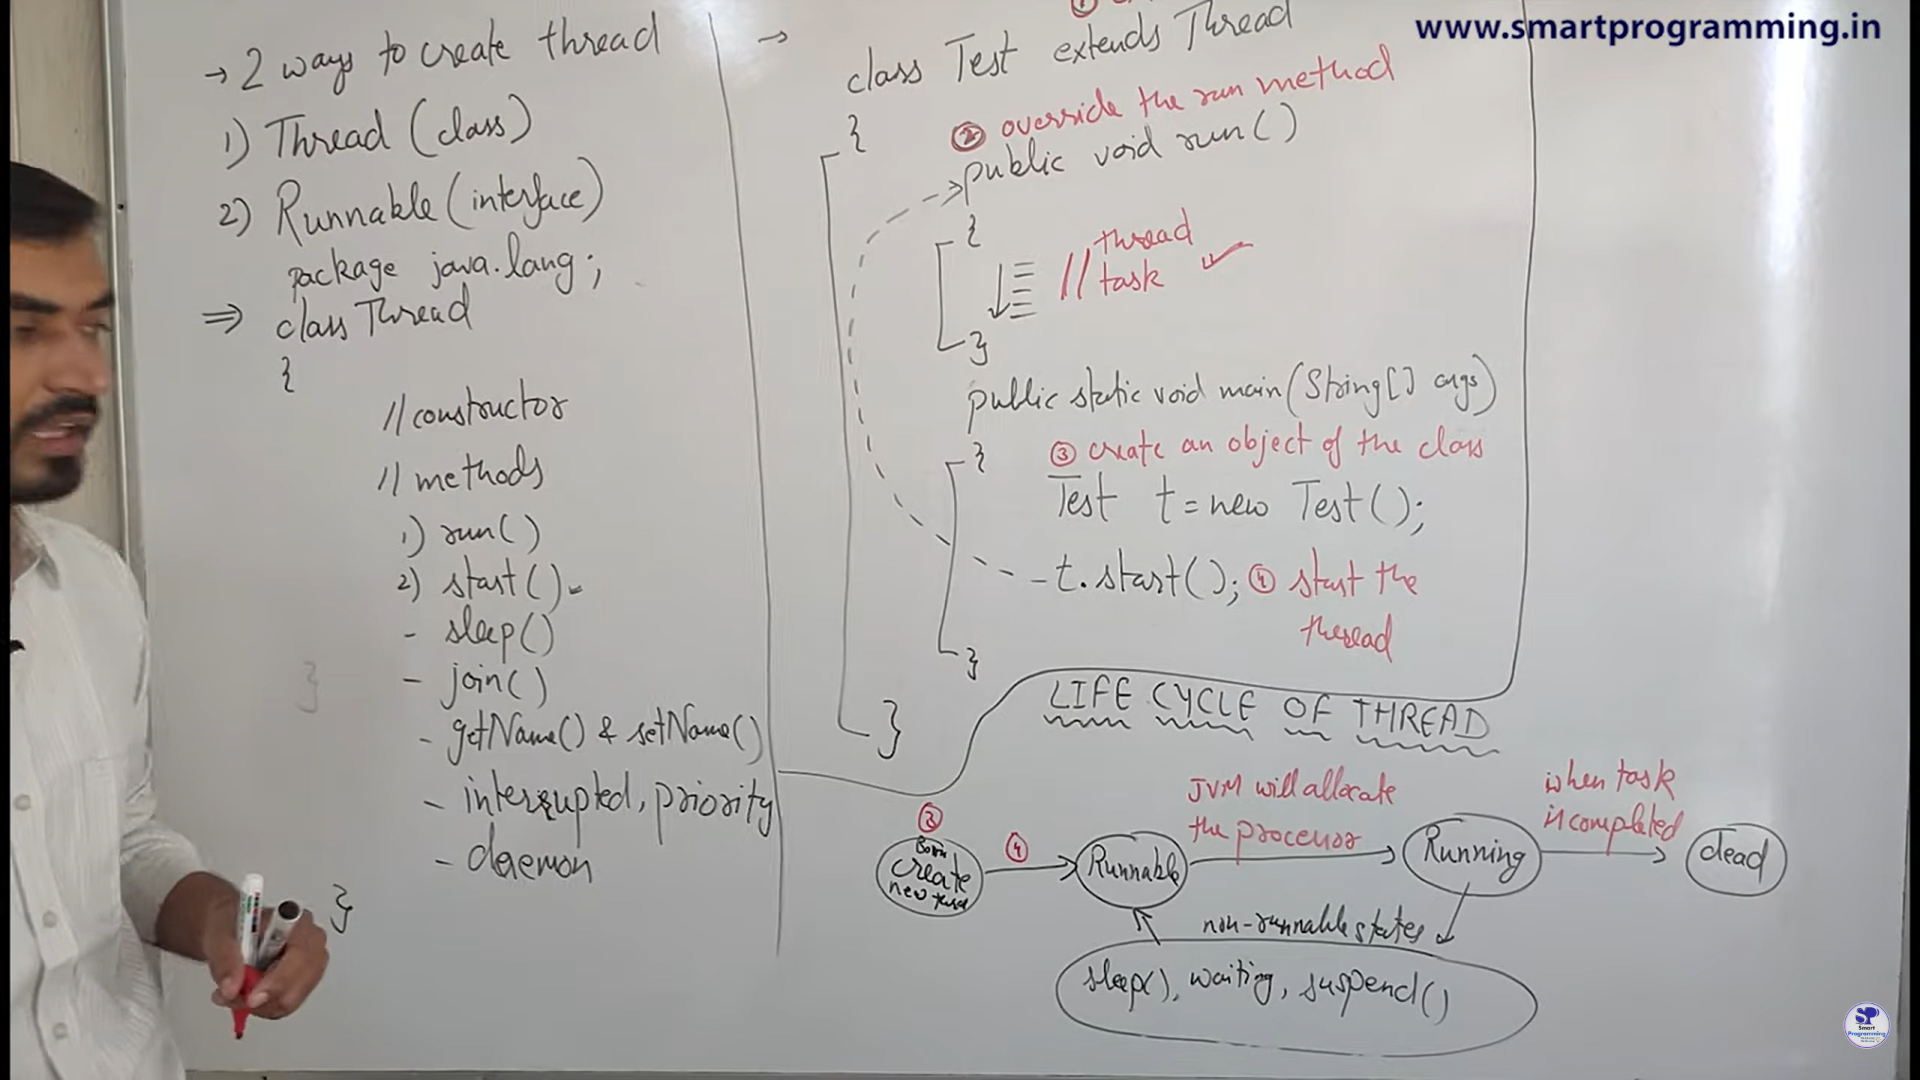 www.smartprogramming.in
→ 2 ways to create thread
1) Thread (class)
2) Runnable (interface)
package java.lang;
⇒ class Thread
{
// constructor
// methods
1) run()
2) start()-
- sleep()
- join()
- getName() & setName()
- interrupted, priority
- daemon
}
}
→
①
class Test extends Thread
{
② override the run method
public void run()
{
// thread
task ✓
}
public static void main(String[] args)
{
③ create an object of the class
Test t = new Test();
- t.start(); ④ start the
thread
}
}
LIFE CYCLE OF THREAD
③
Born
create
new
④
Runnable
JVM will allocate
the processor
Running
when task
is completed
dead
non-runnable states
sleep(), waiting, suspend()
SP
Smart
Programming